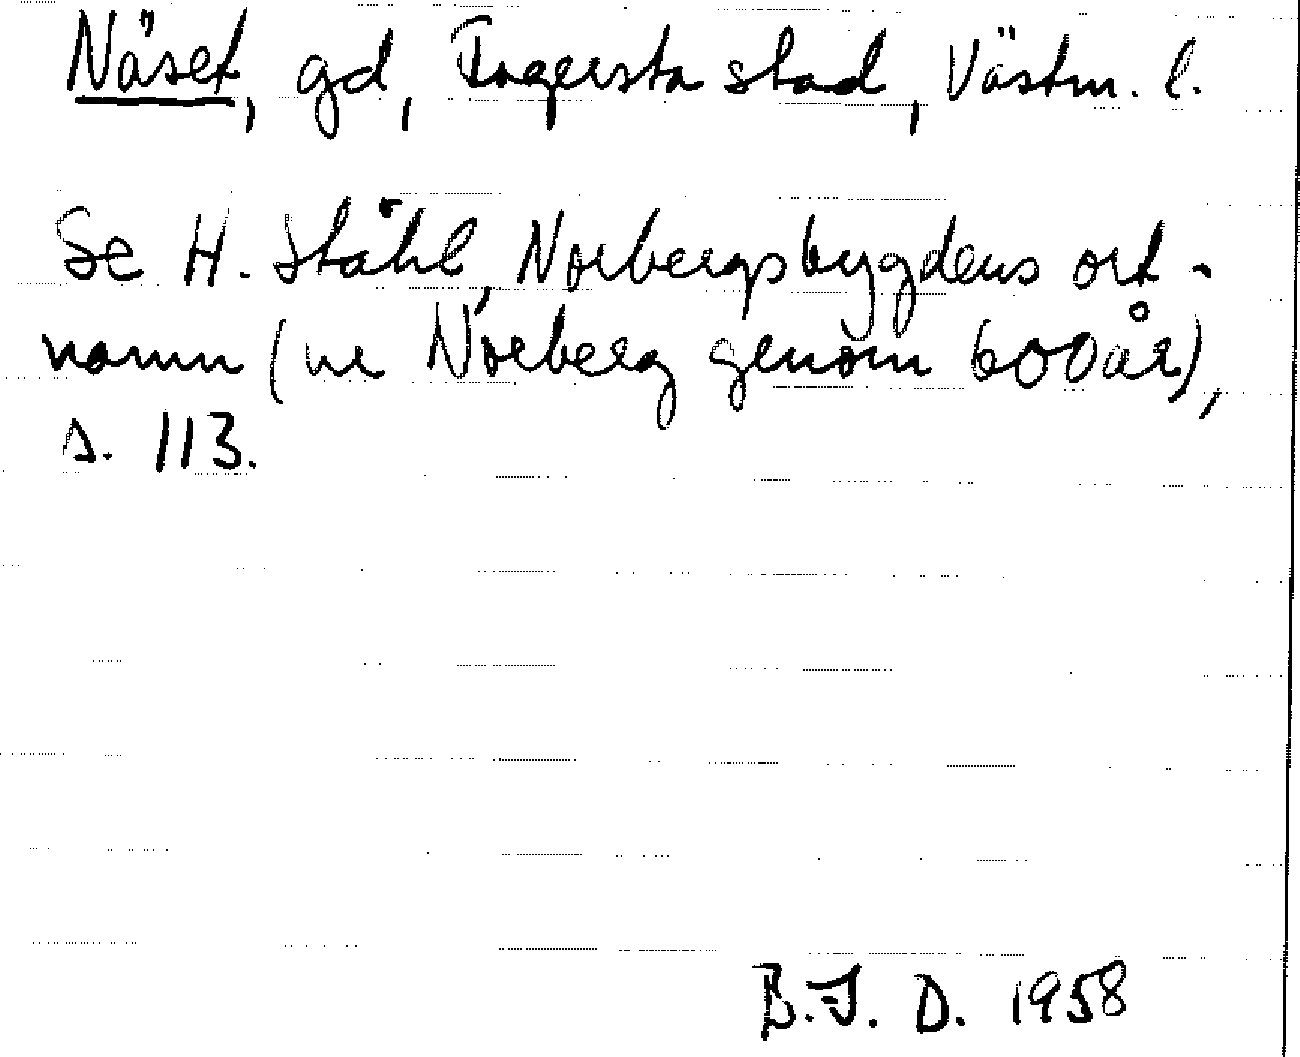 Näset, gd, Fagersta stad, Västm. l.
Se H. Ståhl, Norbergsbygdens ort-
namn (ur Norberg genom 600 år),
s. 113.
B.J. D. 1958